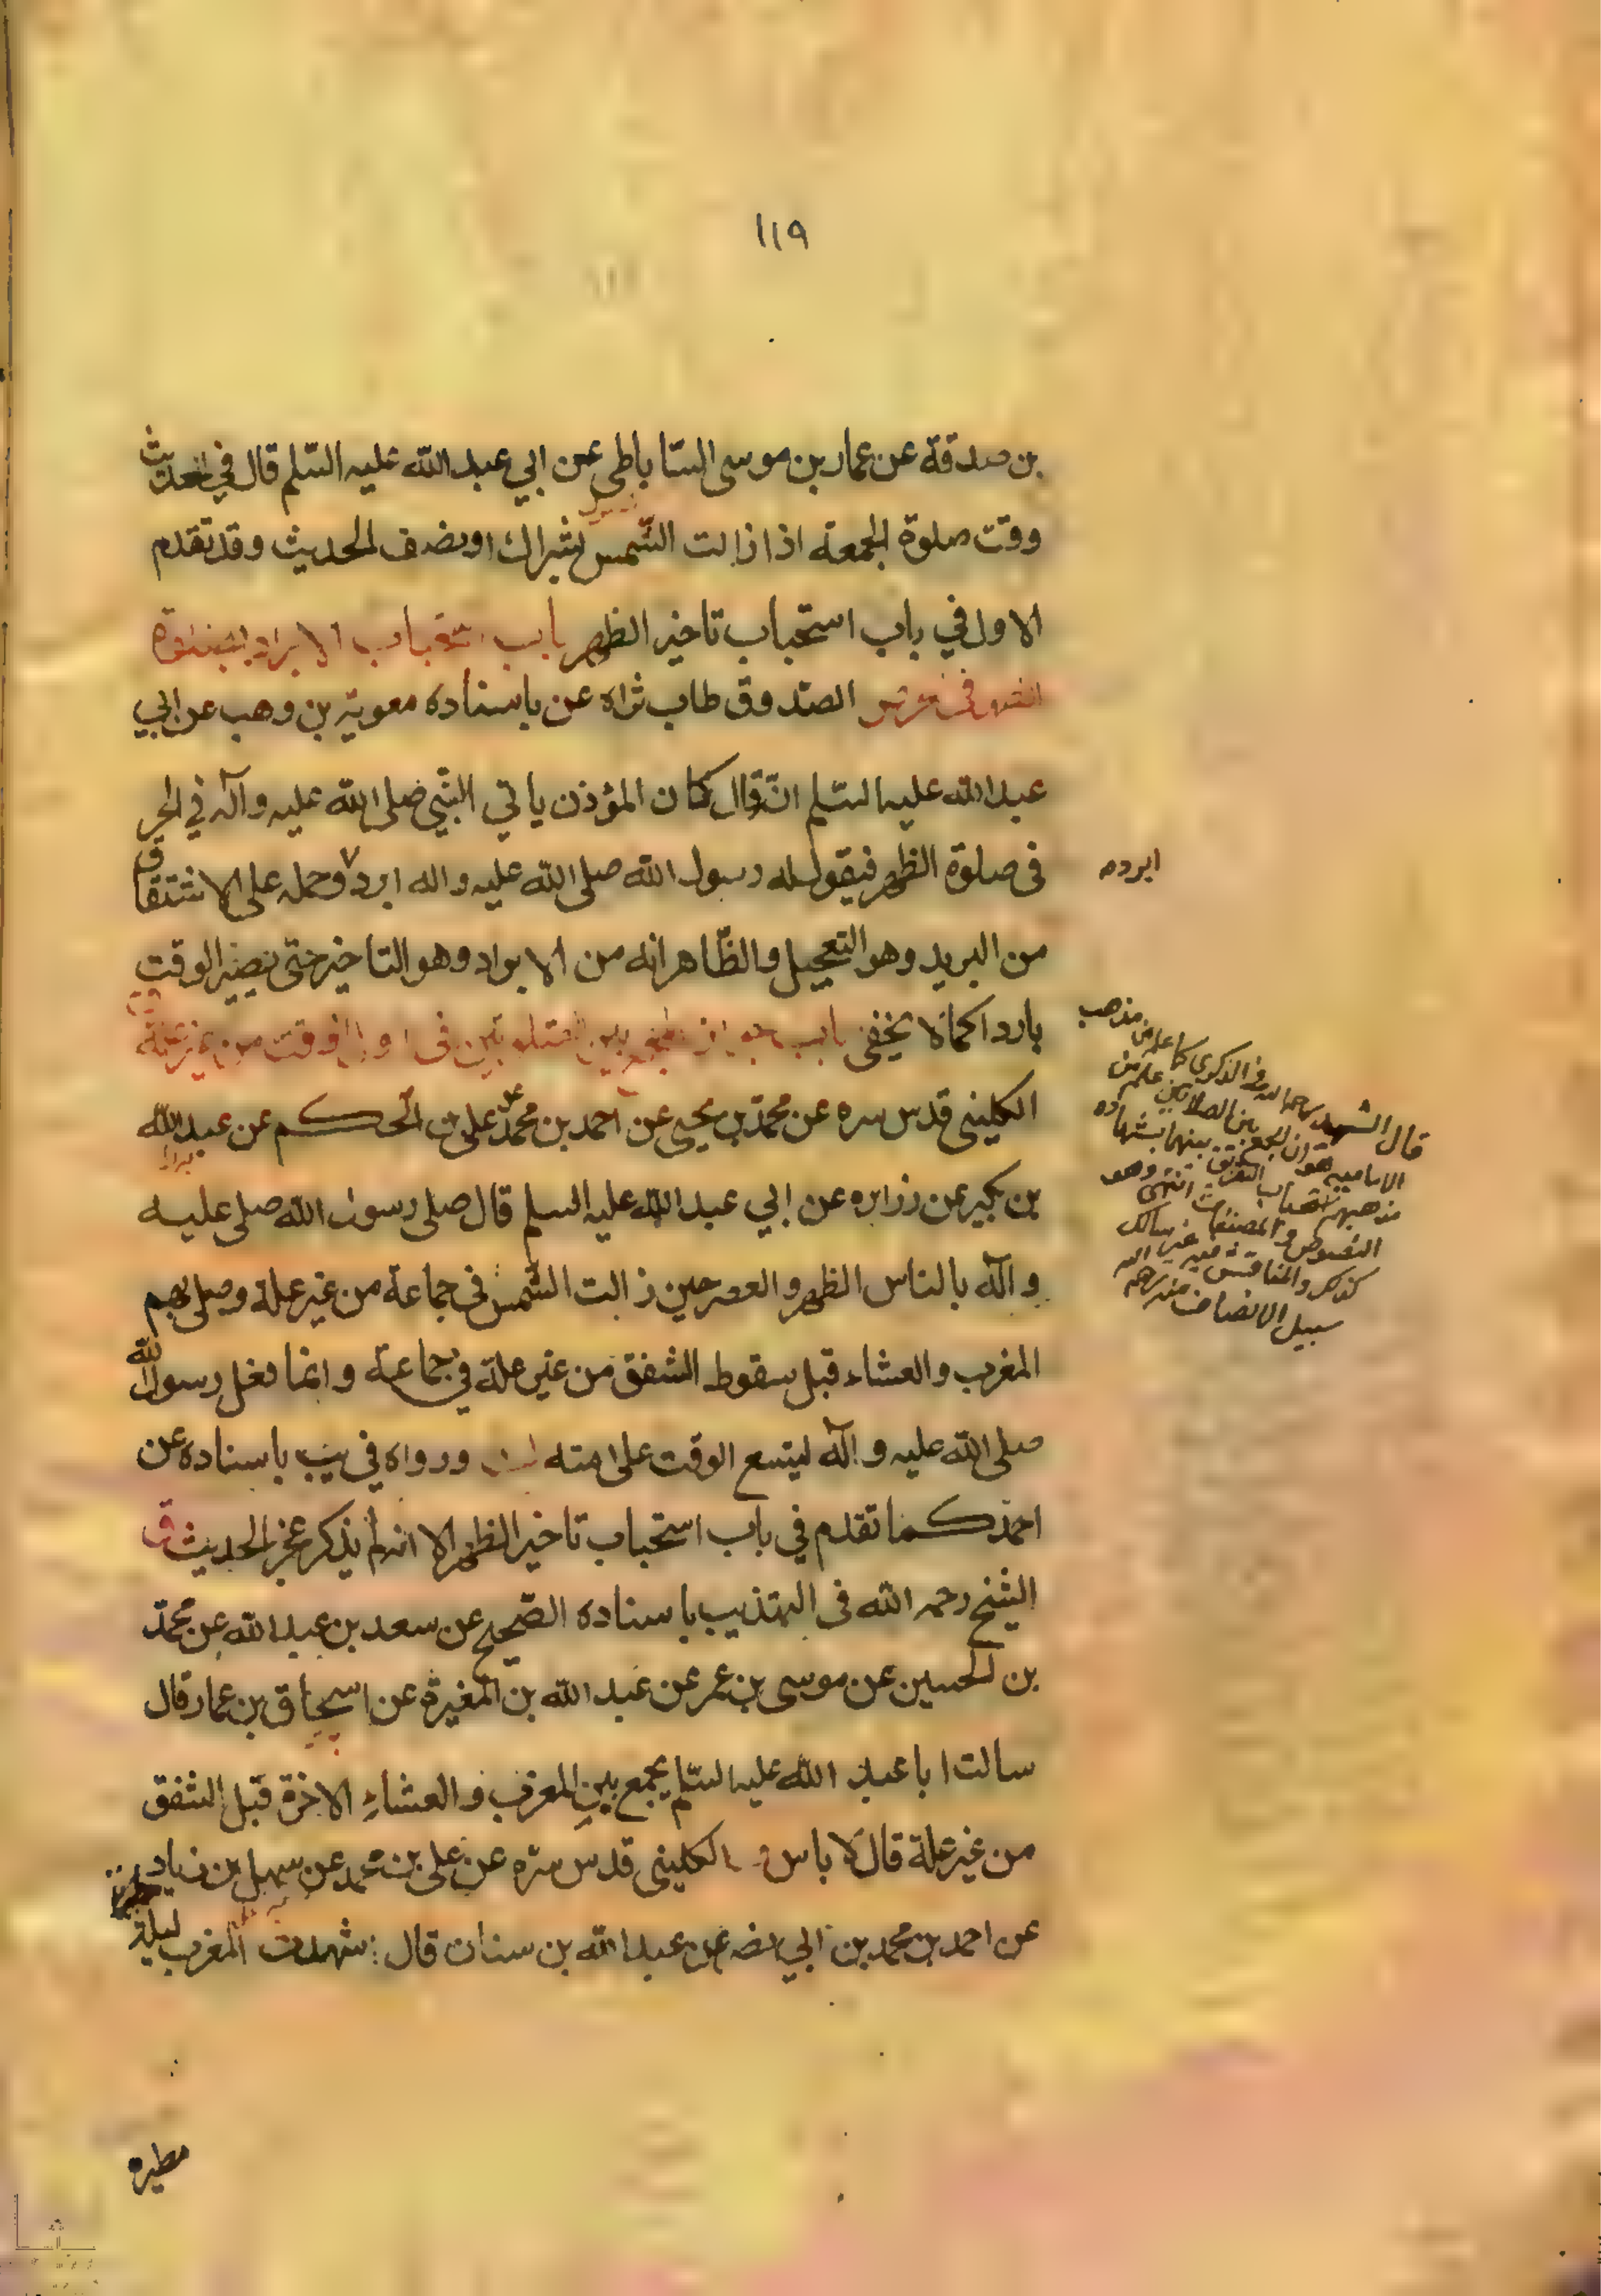 ١١٩
بن صدقة عن عمار بن موسى الساباطي عن ابي عبد الله عليه السّلم قال في الحديث
وقت صلوة الجمعة اذا زالت الشّمس شراك او نصف الحديث وقد تقدم
الاول في باب استحباب تاخير الظهر باب استحباب الابراد بصلوة
الظهر في الحر الصّدوق طاب ثراه عن باسناده معوية بن وهب عن ابي
عبد الله عليه السّلم انّه قال كان المؤذن ياتي النّبي صلى الله عليه وآله في الحر
في صلوة الظهر فيقول له رسول الله صلى الله عليه واله ابرد وحمله على الاشتقاق
ابرد
من البريد وهو التعجيل والظّاهر انه من الابراد وهو التاخير حتى يصير الوقت
باردا كما لا يخفى باب جواز الجمع بين الصلوتين في اول الوقت من غير علة
الكليني قدس سره عن محمّد بن يحيى عن احمد بن محمّد عن علي بن الحكم عن عبد الله
بن بكير عن زراره عن ابي عبد الله عليه السلم قال صلى رسول الله صلى عليه
وآله بالناس الظهر والعصر حين زالت الشّمس في جماعة من غير علة وصلى بهم
المغرب والعشاء قبل سقوط الشفق من غير علة في جماعة وانما فعل رسول الله
صلى الله عليه وآله ليتسع الوقت على امته ورواه في يب باسناده عن
احمد كما تقدم في باب استحباب تاخير الظهر الا انه لم يذكر عجز الحديث ق
الشيخ رحمه الله في التهذيب باسناده الصّحيح عن سعد بن عبد الله عن محمّد
بن الحسين عن موسى بن عمر عن عبد الله بن المغيرة عن اسحاق بن عمار قال
سالت ابا عبد الله عليه السّلم يجمع بين المغرب والعشاء الاخرة قبل الشفق
من غير علة قال لا باس الكليني قدس سره عن علي بن محمد عن سهل بن زياد
عن احمد بن محمد بن ابي نصر عن عبد الله بن سنان قال شهدت المغرب ليلة
قال الشهيد رحمه الله في الذكرى كما علم من مذهب
الامامية ان الجمع بين الصلاتين علم من
مذهبهم استحباب التفريق بينهما بشهادة
النصوص والمصنفات انتهى وهو
كذلك والمناقش فيه غير سالك
سبيل الانصاف
مطيرة